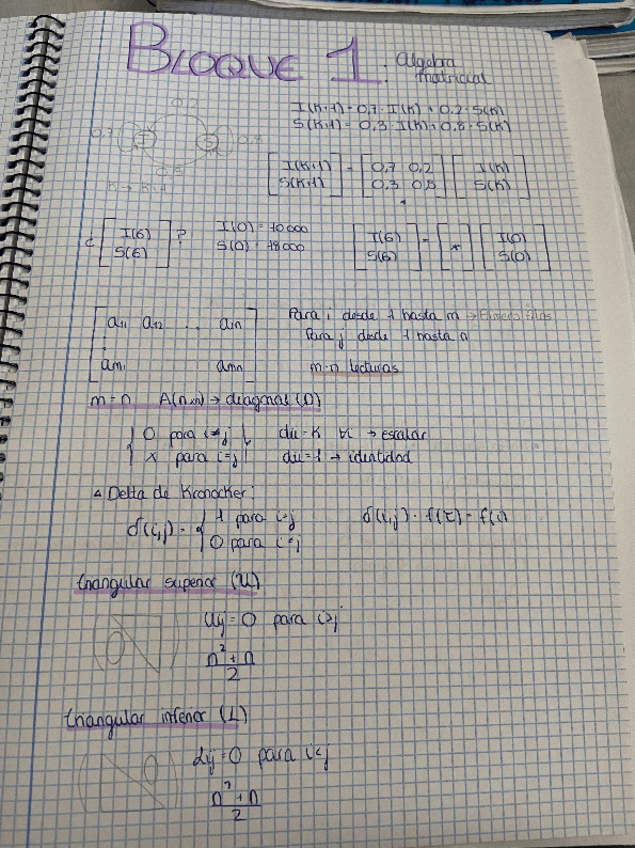 BLOQUE 1: Algebra matricial
0,2
0,7 I S 0,8
0,3
K → K+1
I(K+1) = 0,7 · I(K) + 0,2 · S(K)
S(K+1) = 0,3 · I(K) + 0,8 · S(K)
[I(K+1) S(K+1)] = [0,7 0,2 0,3 0,8] [I(K) S(K)]
¿ [I(6) S(6)] ? I(0) = 10000 S(0) = 18000 [I(6) S(6)] = [*] [I(0) S(0)]
a11 a12 ... a1n Para i desde 1 hasta m →
⋮ Para j desde 1 hasta n
am1 amn m·n lecturas
m=n A(nxn) → diagonal (D)
0 para i≠j dii = K ∀i → escalar
x para i=j dii = 1 → identidad
Delta de Kronocker:
δ(i,j) = { 1 para i=j δ(i,j) ·
0 para i≠j
triangular superior (U)
0 Uij = 0 para i>j
n²+n / 2
triangular inferior (L)
0 Lij = 0 para i<j
n²+n / 2